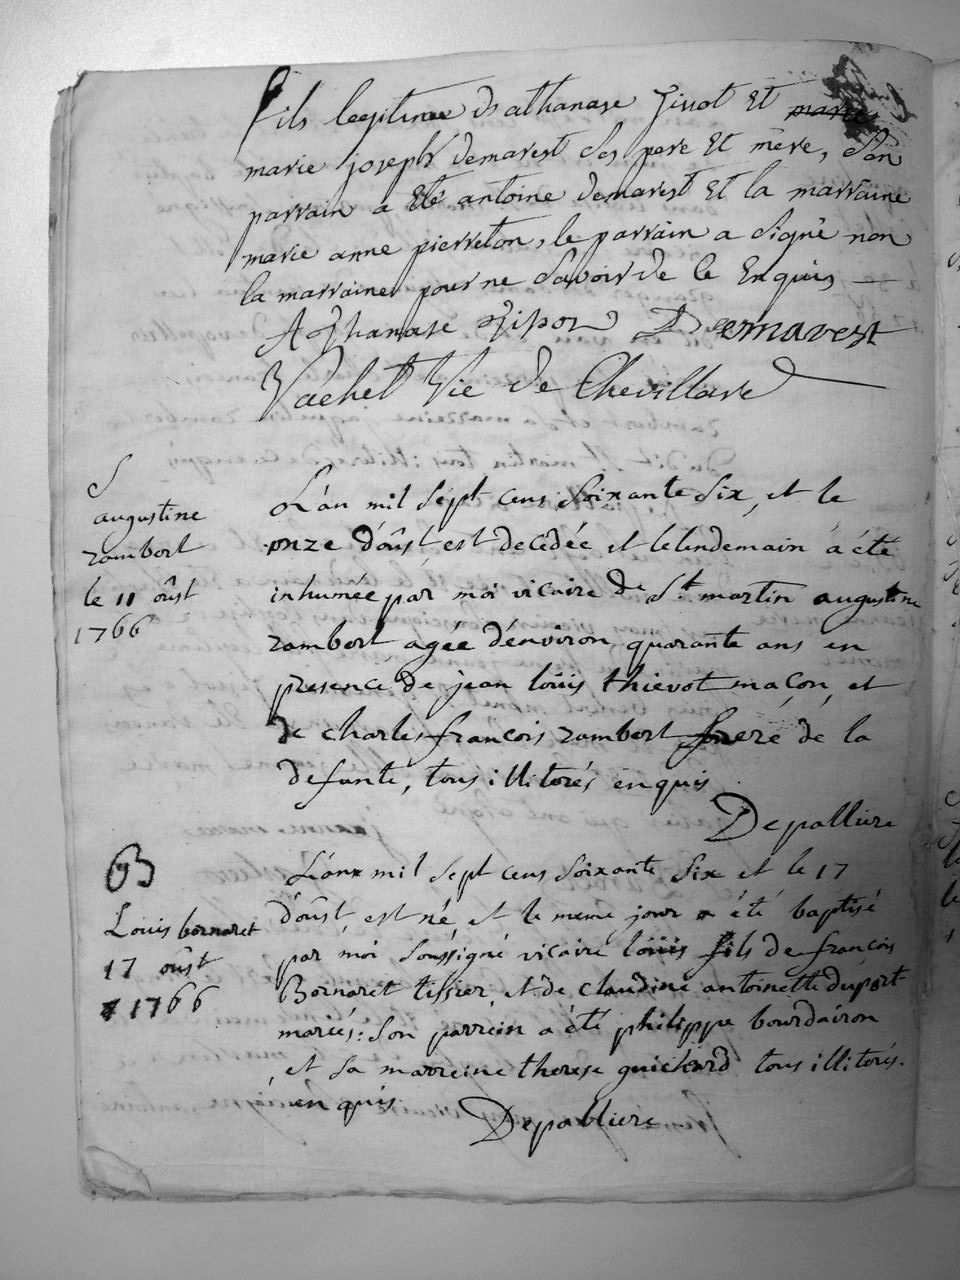 fils legitime d'athanase Jivot Et marie
marie joseph demarest ses pere Et mère, Son
parrain a Eté antoine demarest Et la marraine
marie anne pierreton, le parrain a Signé non
la marraine pour ne Savoir de ce Enquis
Athanase Demarest
Vachet Vic de Chevillard
S
augustine
zambert
le 11 oûst
1766
L'an mil Sept cens Soixante Six, et le
onze d'oûst est decedée et lelendemain a été
inhumée par moi vicaire de St martin augustine
zambert agée d'environ quarante ans en
presence de jean loüis thievot maçon, et
de charles françois zambert frere de la
defunte, tous illitorés enquis
Depalliere
B
Louis bornaret
17 oûst
1766
L'anx mil sept cens Soixante Six et le 17
d'oûst est né et le meme jour a été baptisé
par moi Soussigné vicaire loüis fils de françois
Bornaret tissier, et de claudine antoinette duport
mariés: Son parrein a été philippe bourdairon
, et sa marreine therese guichard tous illitorés.
enquis
Depalliere